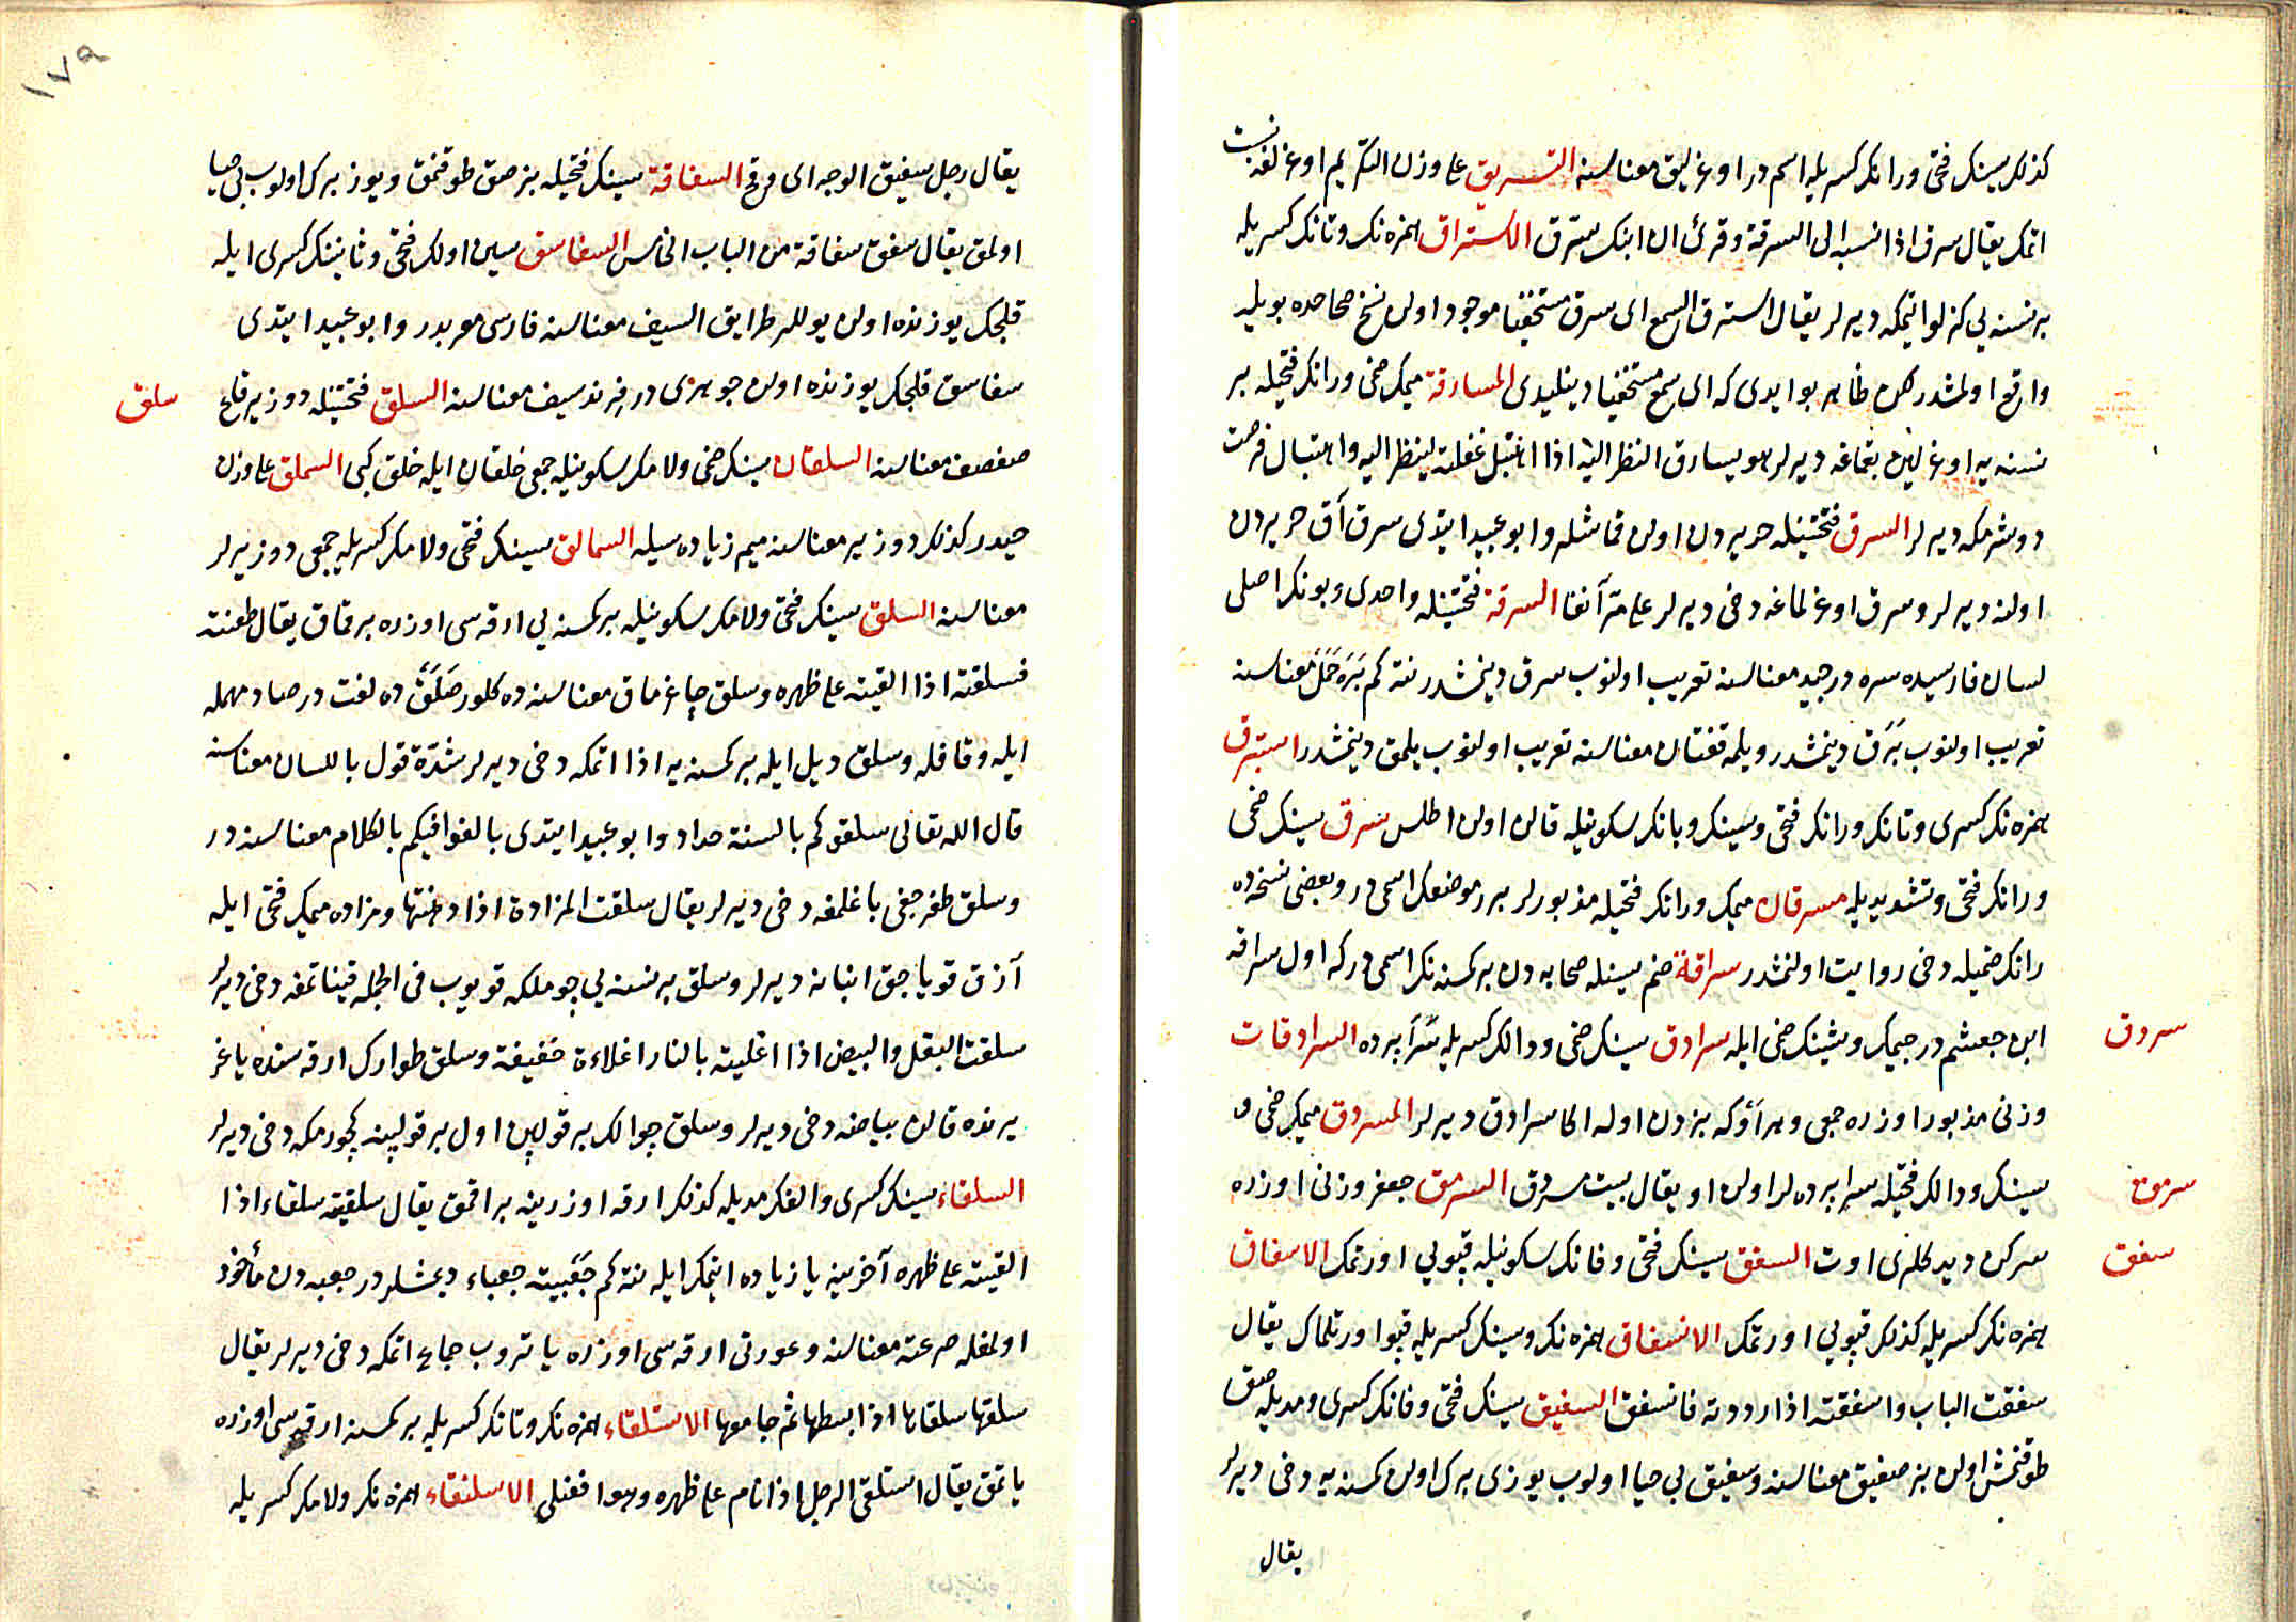 كذلك سينك فتحى ورانك كسريله اسمدر اوغرليق معناسنه التسريق على وزن التكريم اوغرلغه نسبت
اتمك يقال سرق اذا نسبه الى السرقة وقرئ ان ابنك سرق الاستراق همزه نك وتانك كسريله
بر نسنه يى كزلو ايتمكه ديرلر يقال استرق السمع اى سرق مستخفيا موجود اولن نسخ صحاحده بويله
واقع اولمشدر لكن ظاهر بو ايدى كه اى سمع مستخفيا دينليدى المسارقة ميمك ضمى ورانك فتحيله بر
نسنه يه اوغرلين بقماغه ديرلر هو يسارق النظر اليه اذا اهتبل غفلته لينظر اليه واهتبال فرصت
دوشرمكه ديرلر السرق فتحتينله حريردن اولن قماشلر وابو عبيد ايتدى سرق آق حريردن
اولنه ديرلر وسرق اوغرلماغه دخى ديرلر على مر آنفا السرقة فتحتينله واحدى وبونك اصلى
لسان فارسيده سره در جيد معناسنه تعريب اولنوب سرق دينمشدر نته كم بره حمل معناسنه
تعريب اولنوب برق دينمشدر ويلمه قفتان معناسنه تعريب اولنوب يلمق دينمشدر استبرق
همزه نك كسرى وتانك ورانك فتحى وسينك وبانك سكونيله قالن اولن اطلس سرق سينك ضمى
ورانك فتحى وتشديديله مسرقان ميمك ورانك فتحيله مذبورلر برر موضعك اسمى در وبعضى نسخه ده
رانك ضميله دخى روايت اولنمشدر سراقة ضم سينله صحابه دن بر كمسنه نك اسمى در كه اول سراقه
ابن جعشم در جيمك وشينك ضمى ايله سرادق سينك ضمى ودالك كسريله سرا پرده السرادقات
وزنى مذبور اوزره جمعى وهر او كه بزدن اوله اكا سرادق ديرلر المسردق ميمك ضمى و
سينك ودالك فتحيله سرا پرده لر اولن او يقال بيت مسردق السرمق جعفر وزنى اوزره
سركن ديدكلرى اوت السفق سينك فتحى وفانك سكونيله قپويى اورتمك الاسفاق
همزه نك كسريله كذلك قپويى اورتمك الانسفاق همزه نك وسينك كسريله قپو اورتلمك يقال
سفقت الباب واسفقته اذا رددته فانسفق السفيق سينك فتحى وفانك كسرى ومديله صق
طوقنمش اولن بز صفيق معناسنه وسفيق بى حيا اولوب يوزى برك اولن كمسنه يه دخى ديرلر
يقال
سردق
سرمق
سفق
١٧٩
يقال رجل سفيق الوجه اى وقح السفاقة سينك فتحيله بز صق طوقنمق ويوز برك اولوب بى حيا
اولمق يقال سفق سفاقة من الباب الخامس السفاسق سين اولك فتحى وثانينك كسرى ايله
قلجك يوزنده اولن يوللر طرايق السيف معناسنه فارسى معربدر وابو عبيد ايتدى
سفاسق قلجك يوزنده اولن جوهرى در فرند سيف معناسنه السلق فتحتينله دوز ير قاع
صفصف معناسنه السلقان سينك ضمى ولامك سكونيله جمعى خلقان ايله خلق كبى السملق على وزن
حيدر كذلك دوز ير معناسنه ميم زياده سيله السمالق سينك فتحى ولامك كسريله جمعى دوز يرلر
معناسنه السلق سينك فتحى ولامك سكونيله بر كمسنه يى ارقه سى اوزره برقماق يقال طعنته
فسلقته اذا القيته على ظهره وسلق چاغرماق معناسنه ده كلور صلق ده لغت در صاد مهمله
ايله وقافله وسلق ديل ايله بر كمسنه يه اذا اتمكه دخى ديرلر شدة قول باللسان معناسنه
قال الله تعالى سلقوكم بالسنة حداد وابو عبيد ايتدى بالغوا فيكم بالكلام معناسنه در
وسلق طغرجغى ياغلمغه دخى ديرلر يقال سلقت المزادة اذا دهنتها ومزاده ميمك فتحى ايله
آزق قوياجق انبانه ديرلر وسلق بر نسنه يى جوملكه قويوب فى الجمله قيناتمغه دخى ديرلر
سلقت البقل والبيض اذا اغليته بالنار اغلاءة خفيفة وسلق طوارك ارقه سنده ياغر
يرنده قالن بياضه دخى ديرلر وسلق جوالك بر قولپين اول بر قولپينه كچورمكه دخى ديرلر
السلقاء سينك كسرى والفك مديله كذلك ارقه اوزرينه براقمق يقال سلقيته سلقاء اذا
القيته على ظهره آخرينه يا زياده ايتمك ايله نته كم جعبيته جعباء ديمشلردر جعبه دن مأخوذ
اولمغله صرعته معناسنه وعورتى ارقه سى اوزره ياتروب جماع اتمكه دخى ديرلر يقال
سلقها سلقاها اذا بسطها ثم جامعها الاستلقاء همزه نك وتانك كسريله بر كمسنه ارقه سى اوزره
ياتمق يقال استلقى الرجل اذا نام على ظهره وهو افعنلى الاسلنقاء همزه نك ولامك كسريله
سلق